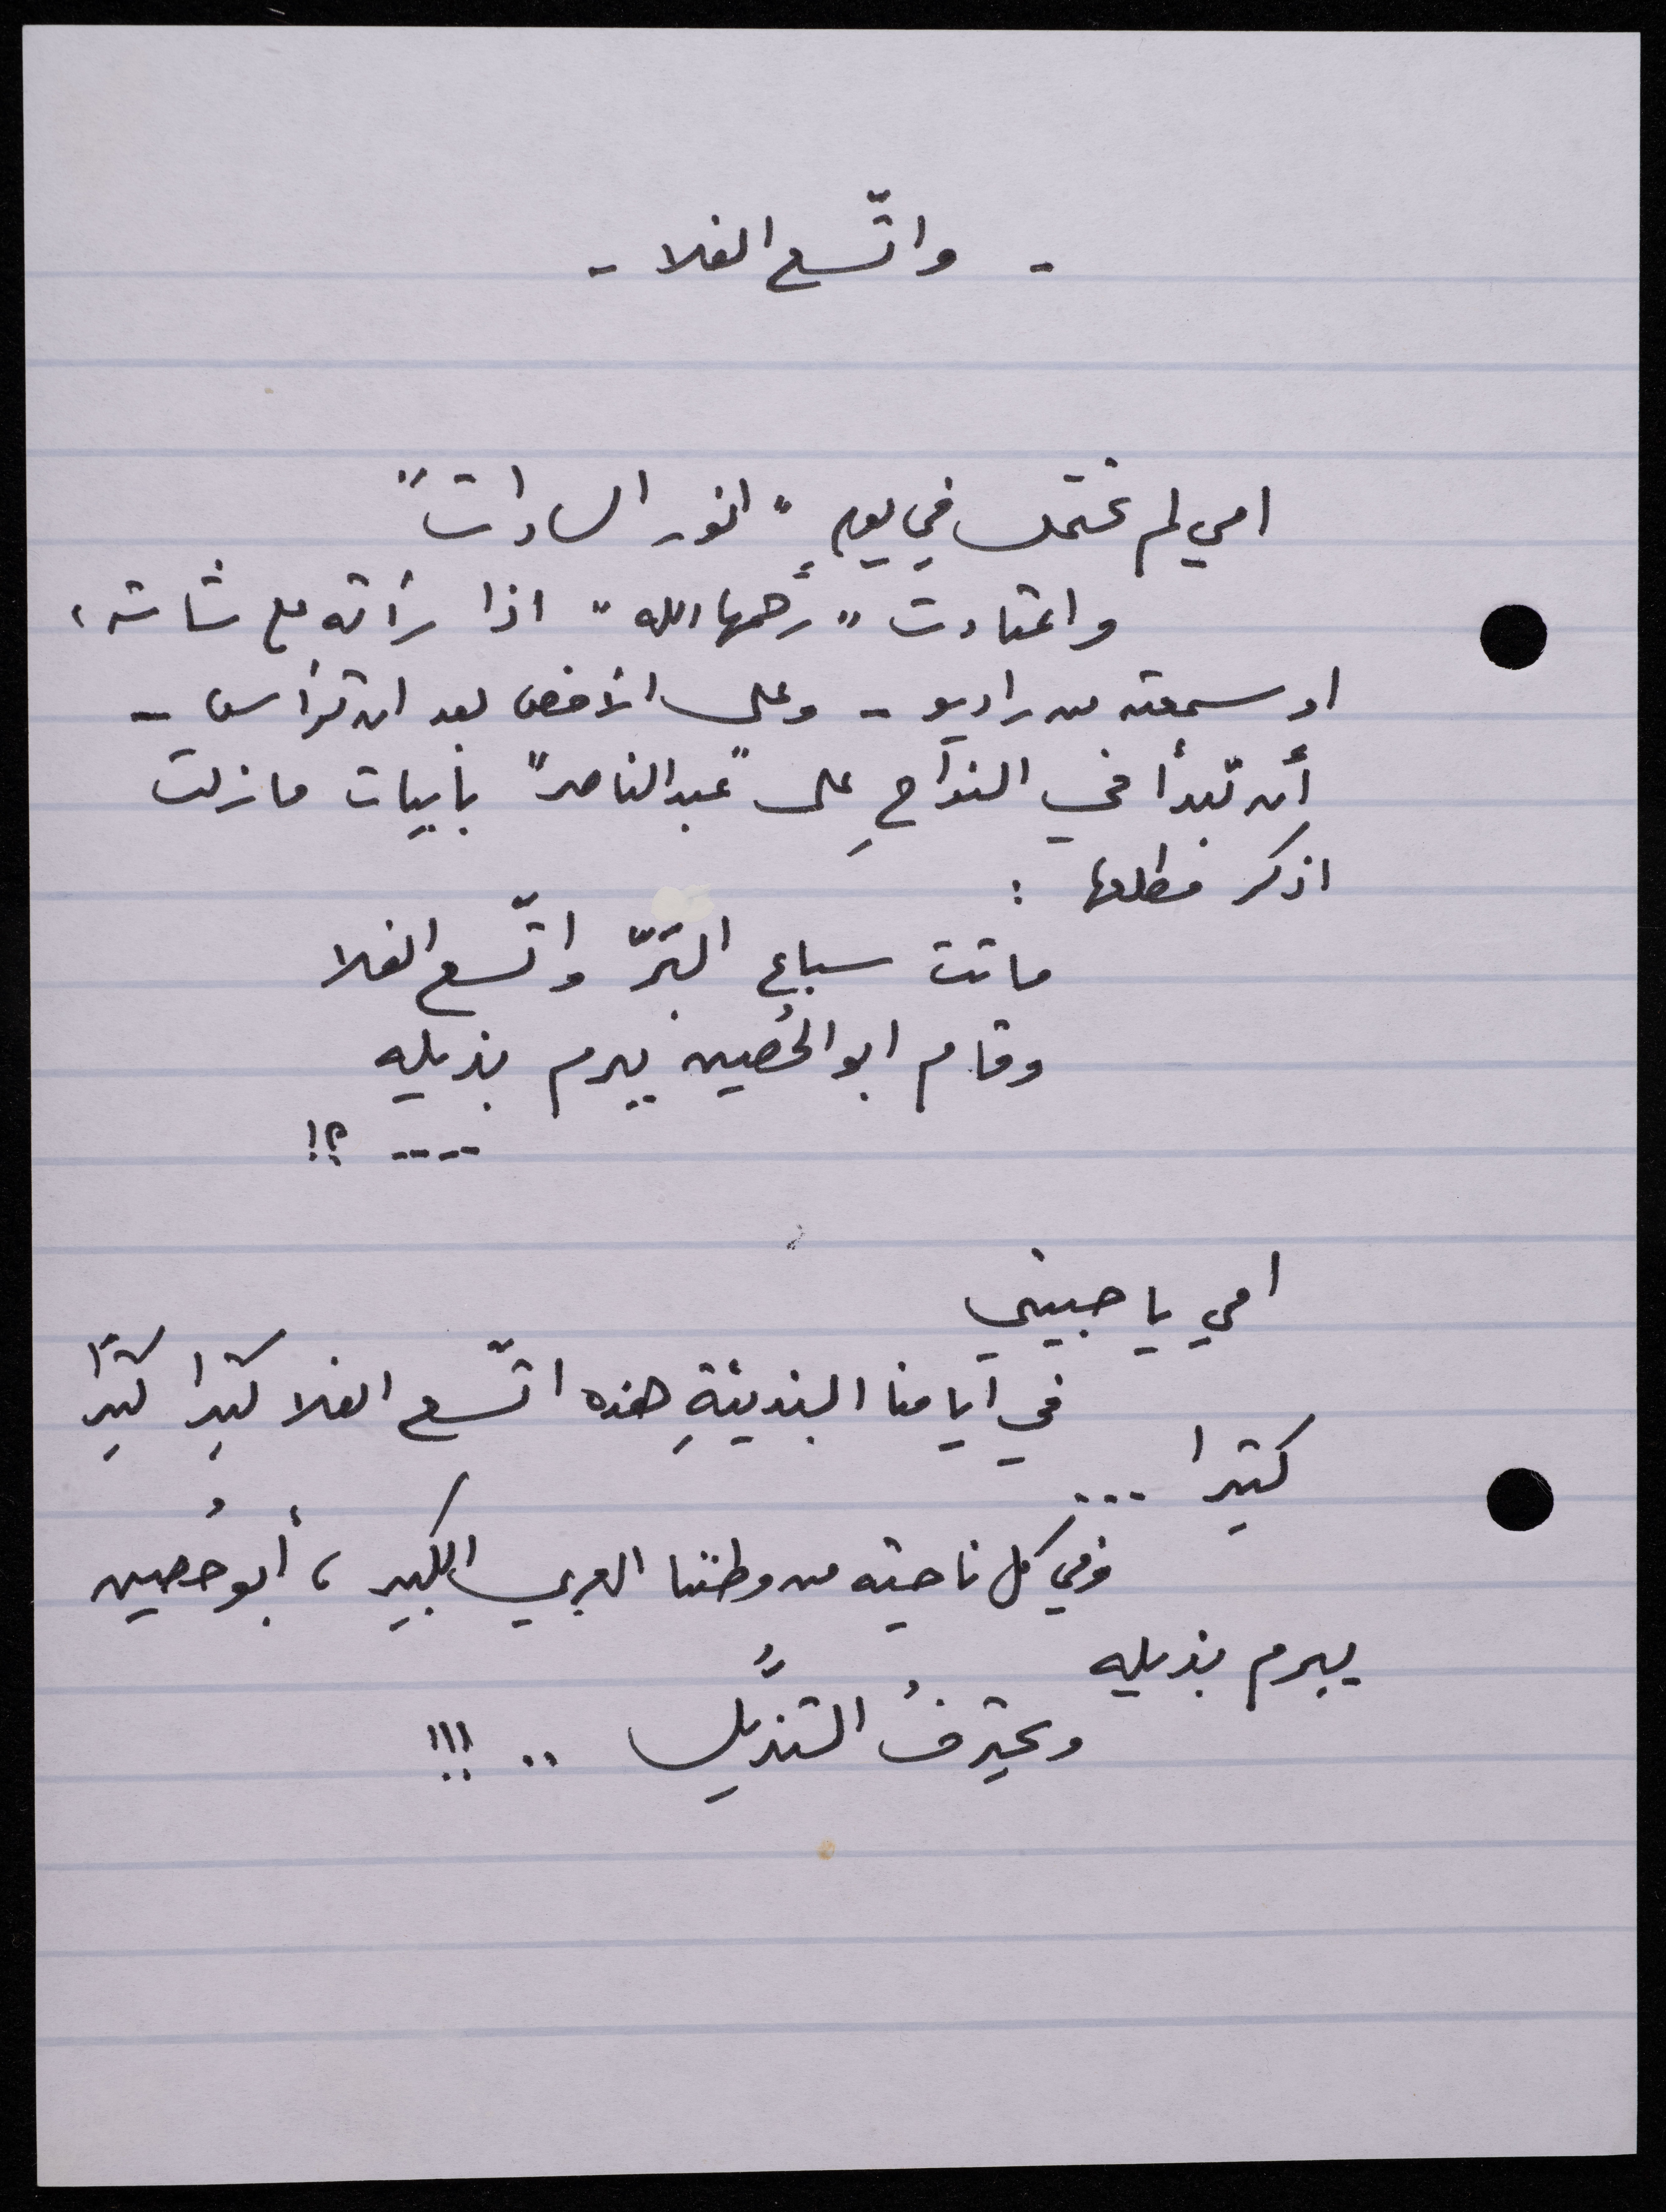 - واتّسع الفلا -
امي لم تحتمل في يومٍ "انور السادات"
واعتادت "رَحمها الله" اذا رأته على شاشه،
او سمعته من راديو - وعلى الأخص بعد ان ترأس -
أن تبدأ في النواحِ على "عبد الناصر" بأبيات مازلت
اذكر مطلعها :
ماتت سباع البَرّ واتّسع الفلا
وقام ابو الحُصين يبرم بذيله
.... ؟!
امي يا حبيبتي
في أيامنا البذيئةِ هذه اتّسع الفلا كثيرا كثيرًا
كثيرا ...
وفي كل ناحيه من وطننا العربي الكبير ، أبو حُصين
يبرم بذيله
ويحترفُ التذيُّل .. !!!